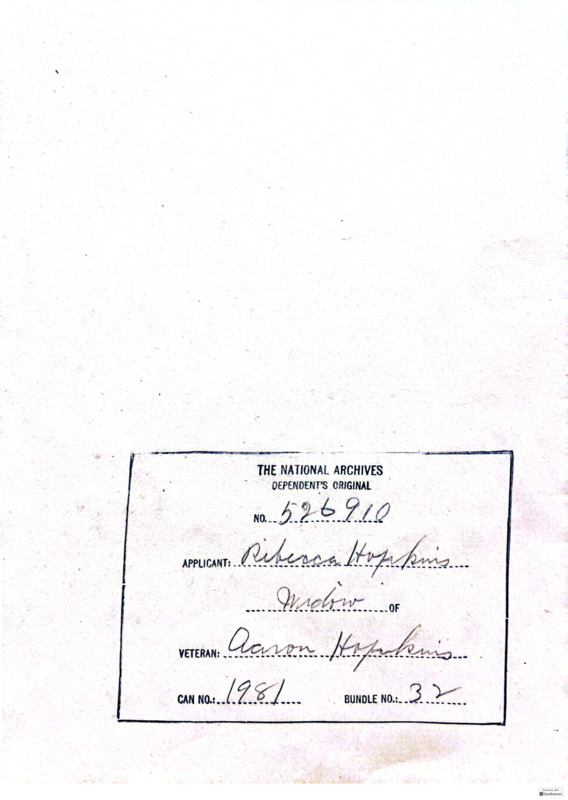 THE NATIONAL ARCHIVES
DEPENDENT'S ORIGINAL
NO. 526910
APPLICANT: Rebecca Hopkins
Widow OF
VETERAN: Aaron Hopkins
CAN NO.: 1981 BUNDLE NO.: 32